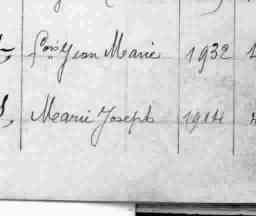 Fçois Jean Marie 1932
Marie Joseph 1914